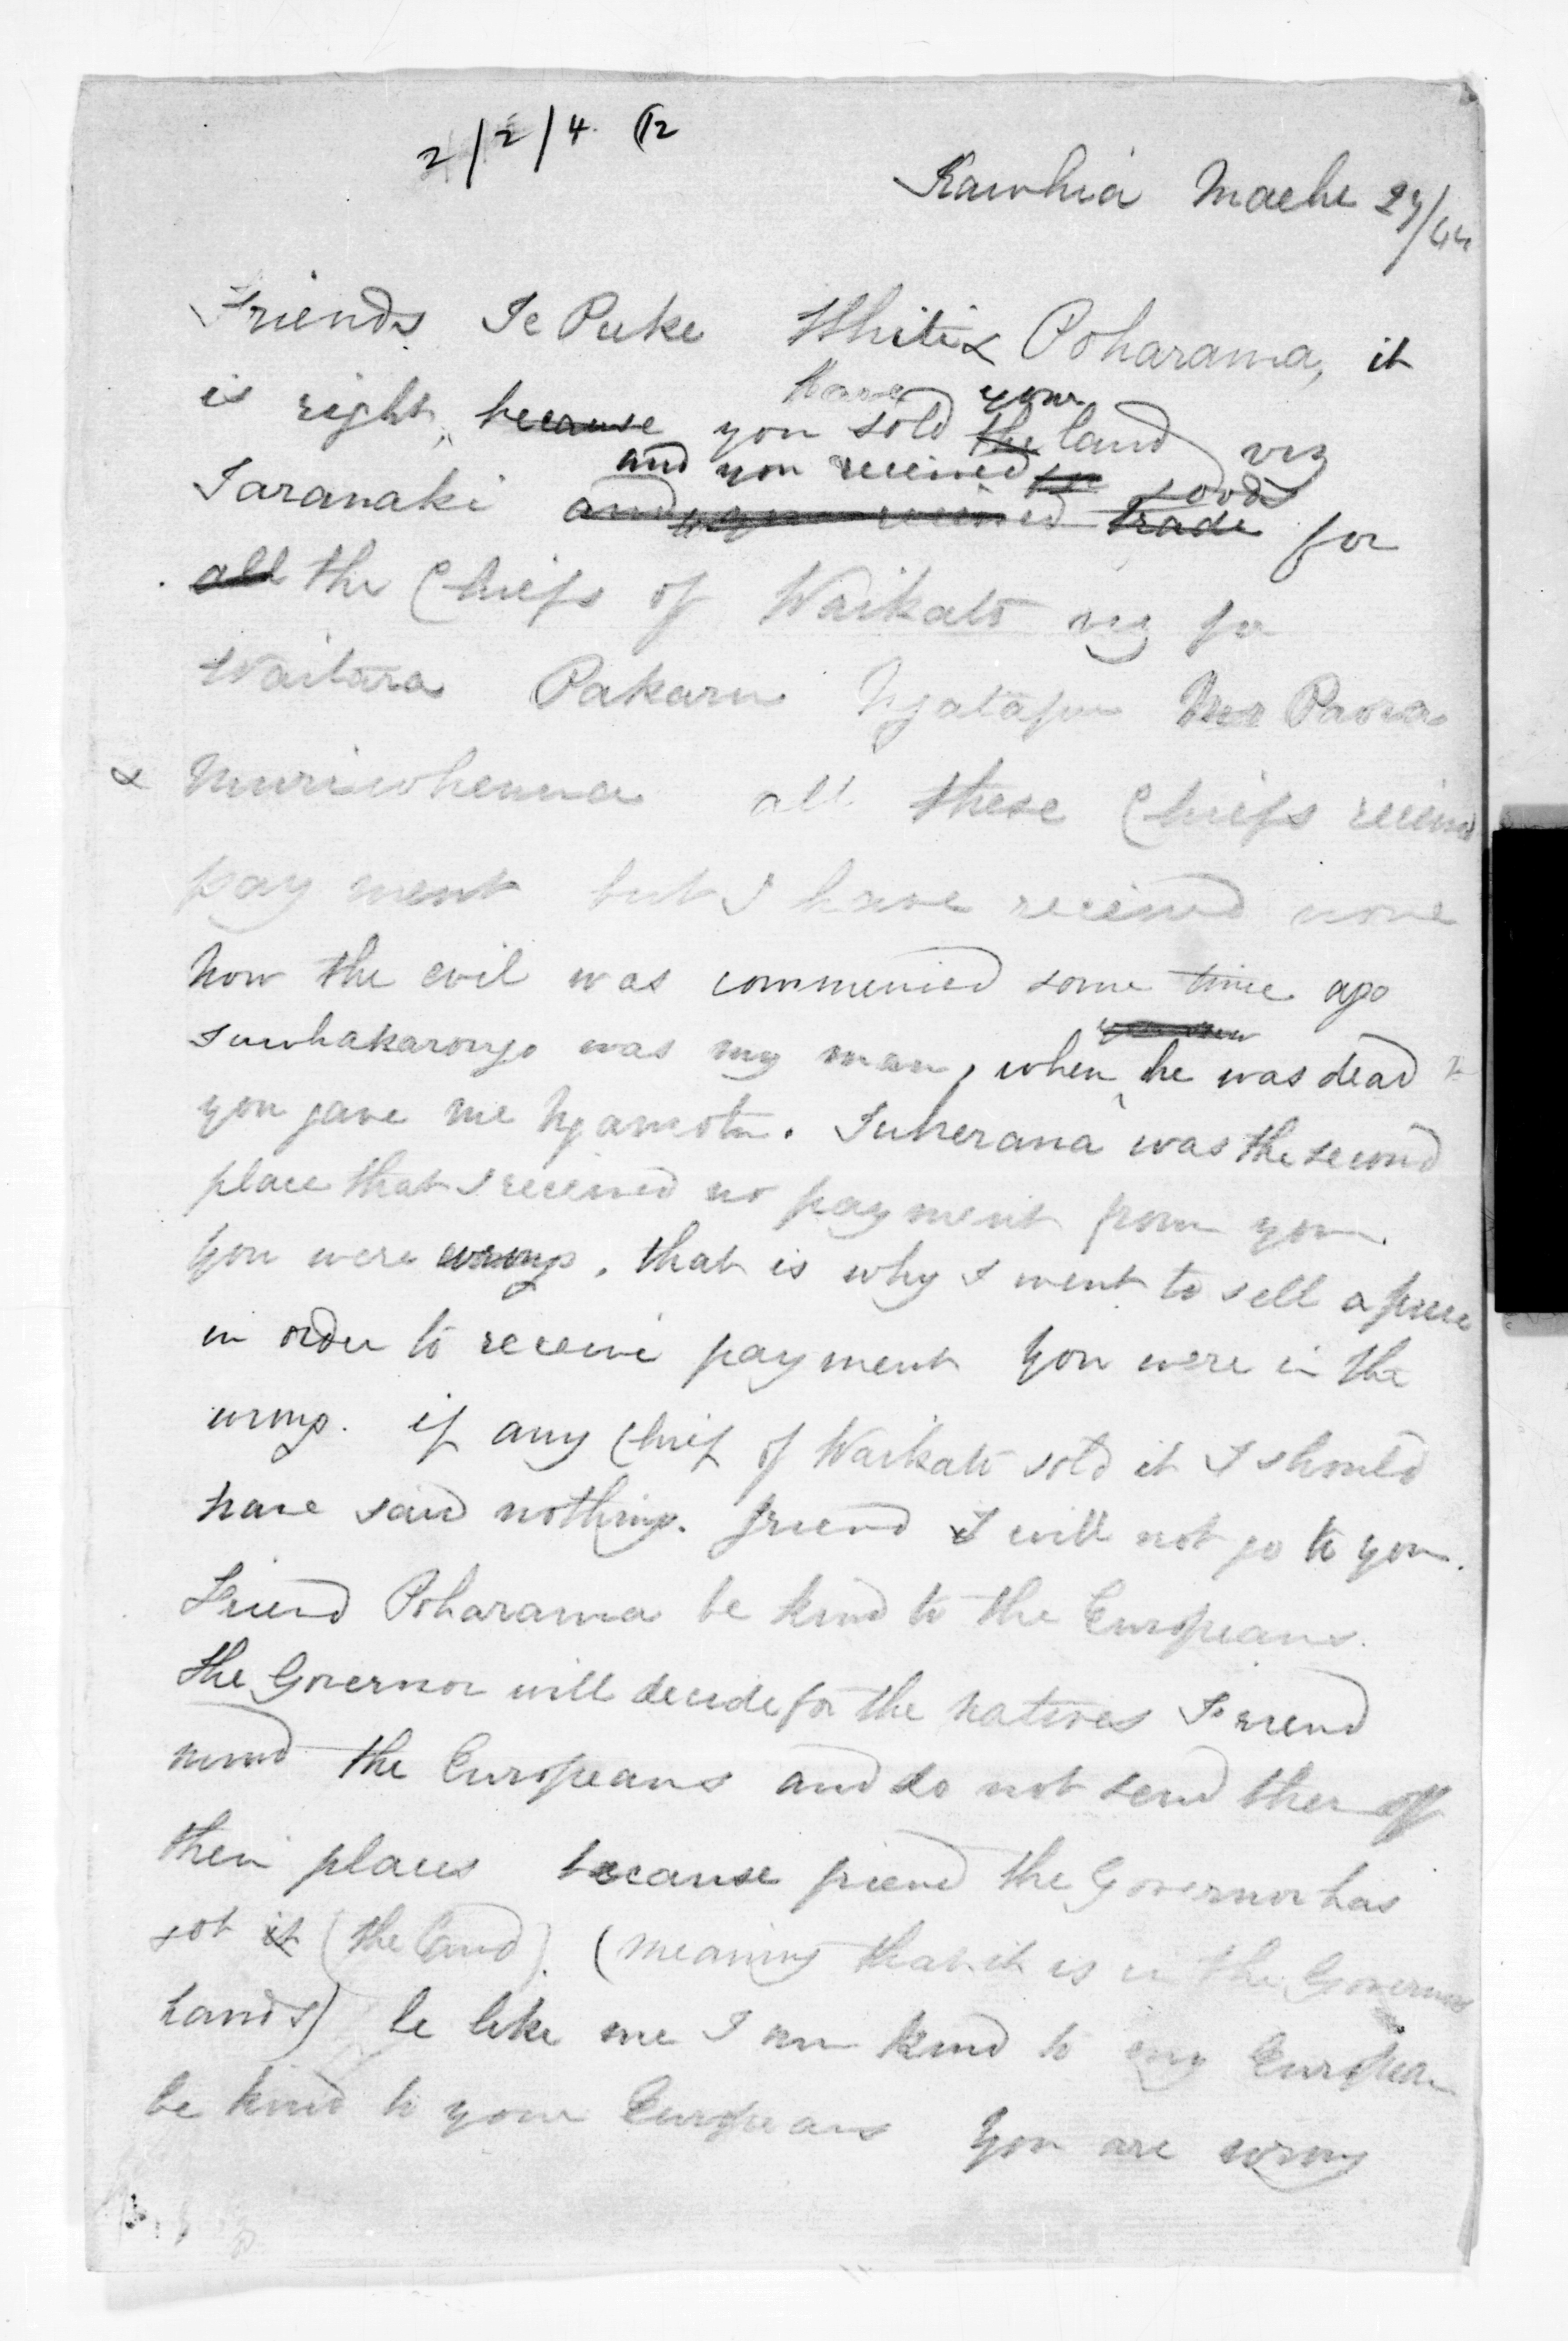 2/2/4. (12
Kawhia Maehe 27/44
Friends Te Puke Whiti & Poharama, it
have your
is right, because you sold the land viz
and you received goods
Taranaki and you received trade for
all the Chiefs of Waikato viz for
Waitara Pakaru Ngatapu Paora
& Muriwhenua all these Chiefs received
pay ment but I have received none
Now the evil was commenced some time ago
Tuwhakarongo was my man, when he was dead
you gave me Ngamotu. Tukerana was the second
place that I received no payment from you.
You were wrong, that is why I went to sell a piece
in order to receive payment You were in the
wrong. if any Chief of Waikato sold it I should
have said nothing. friend I will not go to you.
Friend Poharama be kind to the Europeans.
the Governor will decide for the natives Friend
mind the Europeans and do not send them off
their places because friend the Governor has
got it (the land). (meaning that it is in the Governors
hands) be like me I am kind to my European
be kind to your Europeans You are wrong